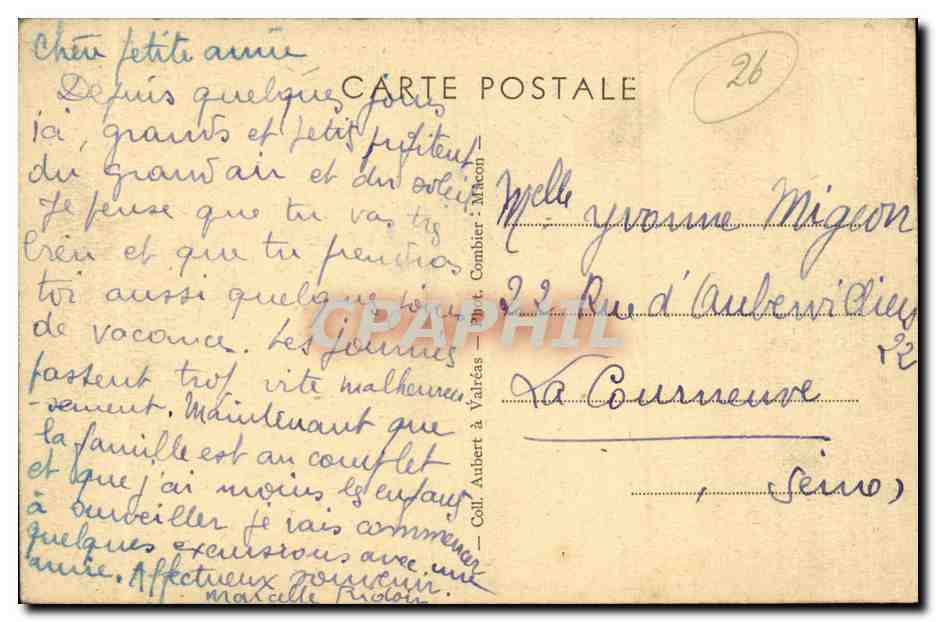 Chère petite amie
Depuis quelques jours
ici, grands et petits profitent
du grand air et du soleil
Je pense que tu vas très
bien et que tu prendras
toi aussi quelques jours
de vacance. Les journées
passent trop vite malheureu
-sement. Maintenant que
la famille est au complet
et que j'ai moins les enfants
à surveiller je vais commencer
quelques excursions avec une
amie. Affectueux souvenir.
Marcelle
CARTE POSTALE
26
— Coll. Aubert à Valréas — Phot. Combier - Mâcon —
Melle Yvonne Migeon
22 Rue d'Aubervilliers
22
La Courneuve
(Seine)
CPAPHIL